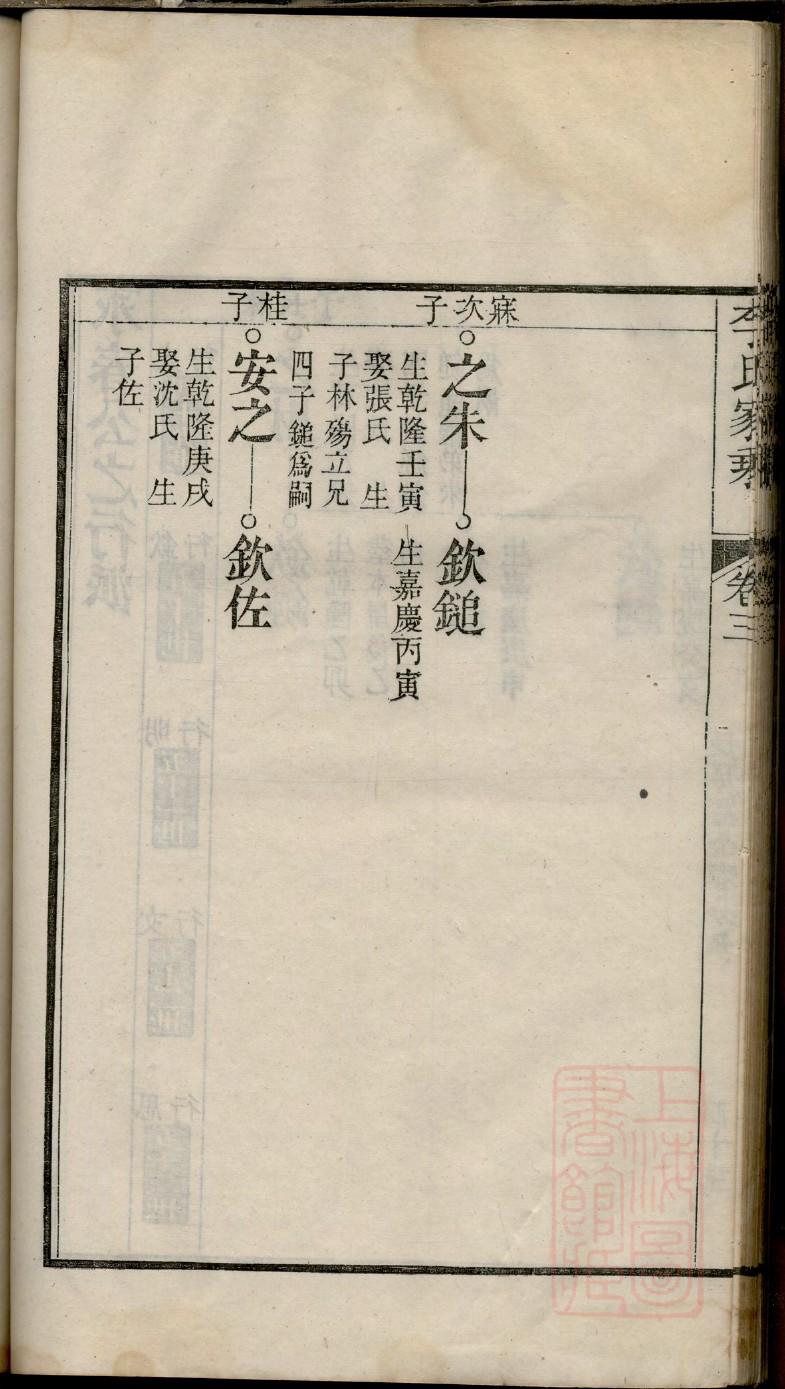 李氏家乘 卷三
寐次子
之朱
生乾隆壬寅
娶張氏 生
子林殤立兄
四子鎚爲嗣
欽鎚
生嘉慶丙寅
桂子
安之
生乾隆庚戌
娶沈氏 生
子佐
欽佐
上海圖
書館藏